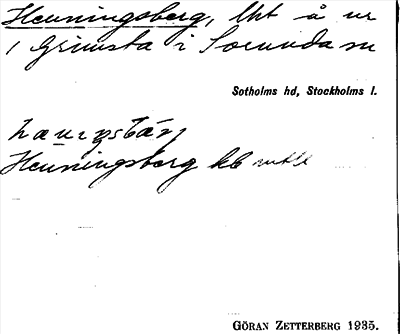 Henningsberg, lht å nr
1 Grimsta i Sorunda sn
Sotholms hd, Stockholms l.
Henningsberg kb
GÖRAN ZETTERBERG 1935.